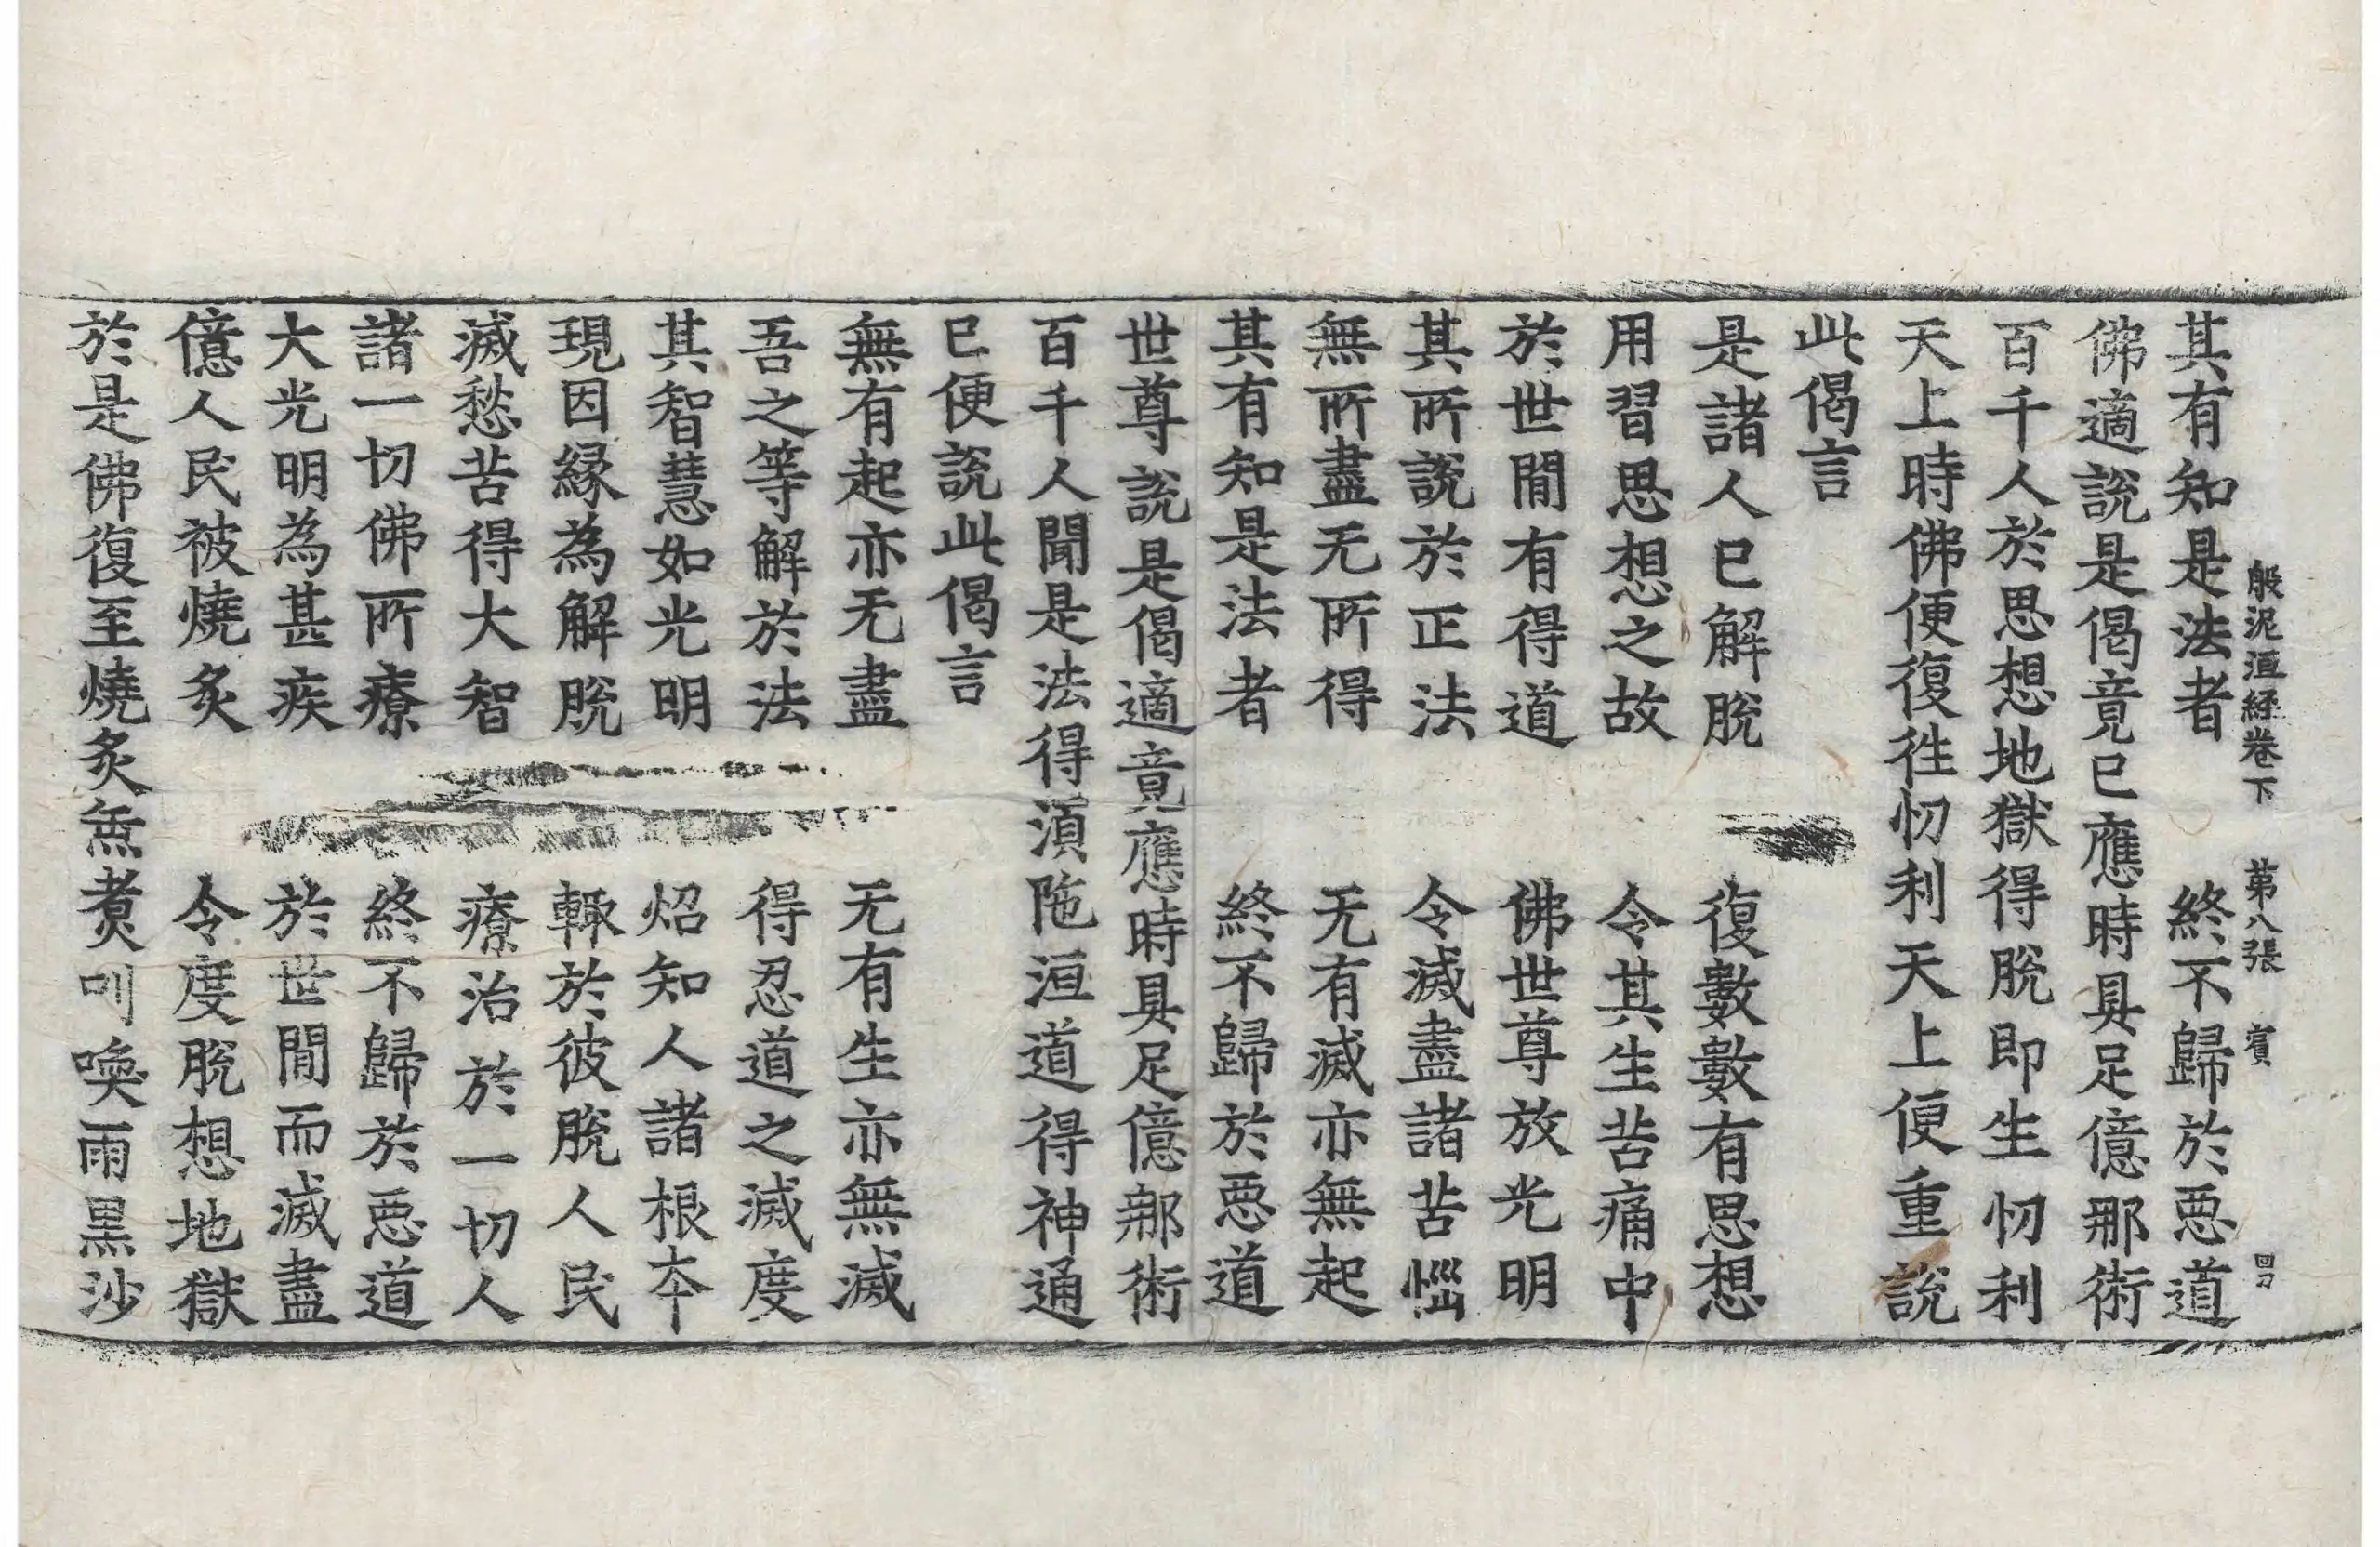 般泥洹経卷下　第八張　賓
其有知是法者　終不歸於惡道
佛適說是偈竟已應時具足億那術
百千人於思想地獄得脫即生忉利
天上時佛便復往忉利天上便重說
此偈言
是諸人已解脫　復數數有思想
用習思想之故　令其生苦痛中
於世閒有得道　佛世尊放光明
其所說於正法　令滅盡諸苦惱
無所盡无所得　无有滅亦無起
其有知是法者　終不歸於惡道
世尊說是偈適竟應時具足億那術
百千人聞是法得須陁洹道得神通
已便說此偈言
無有起亦无盡　无有生亦無滅
吾之等解於法　得忍道之滅度
其智慧如光明　炤知人諸根本
現因緣為解脫　輒於彼脫人民
滅愁苦得大智　療治於一切人
諸一切佛所療　終不歸於惡道
大光明為甚疾　於世閒而滅盡
億人民被燒炙　令度脫想地獄
於是佛復至燒炙無煑叫喚雨黒沙